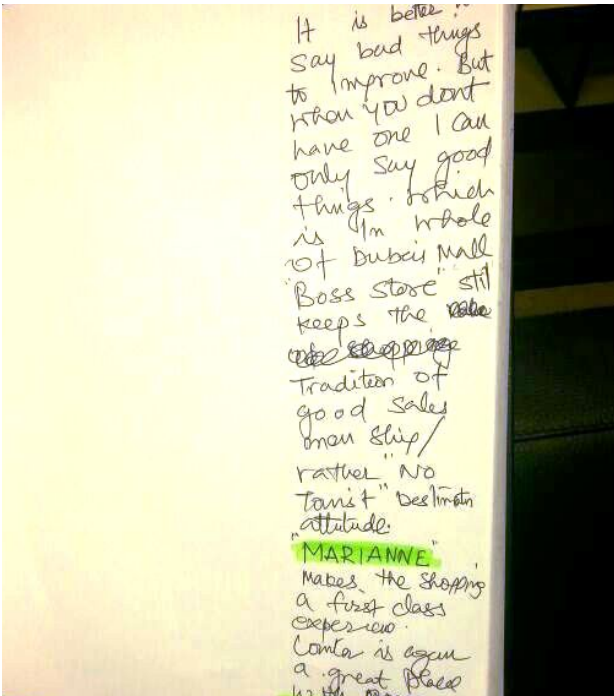 It is better
say bad things
to improve. But
when you dont
have one I can
only say good
things. which
is In whole
of Dubai Mall
"Boss store" stil
keeps the
Tradition of
good sales
man ship/
rather "No
Tourist" Destinatn
attitude.
"MARIANNE"
makes the shopping
a first class
is again
a great place